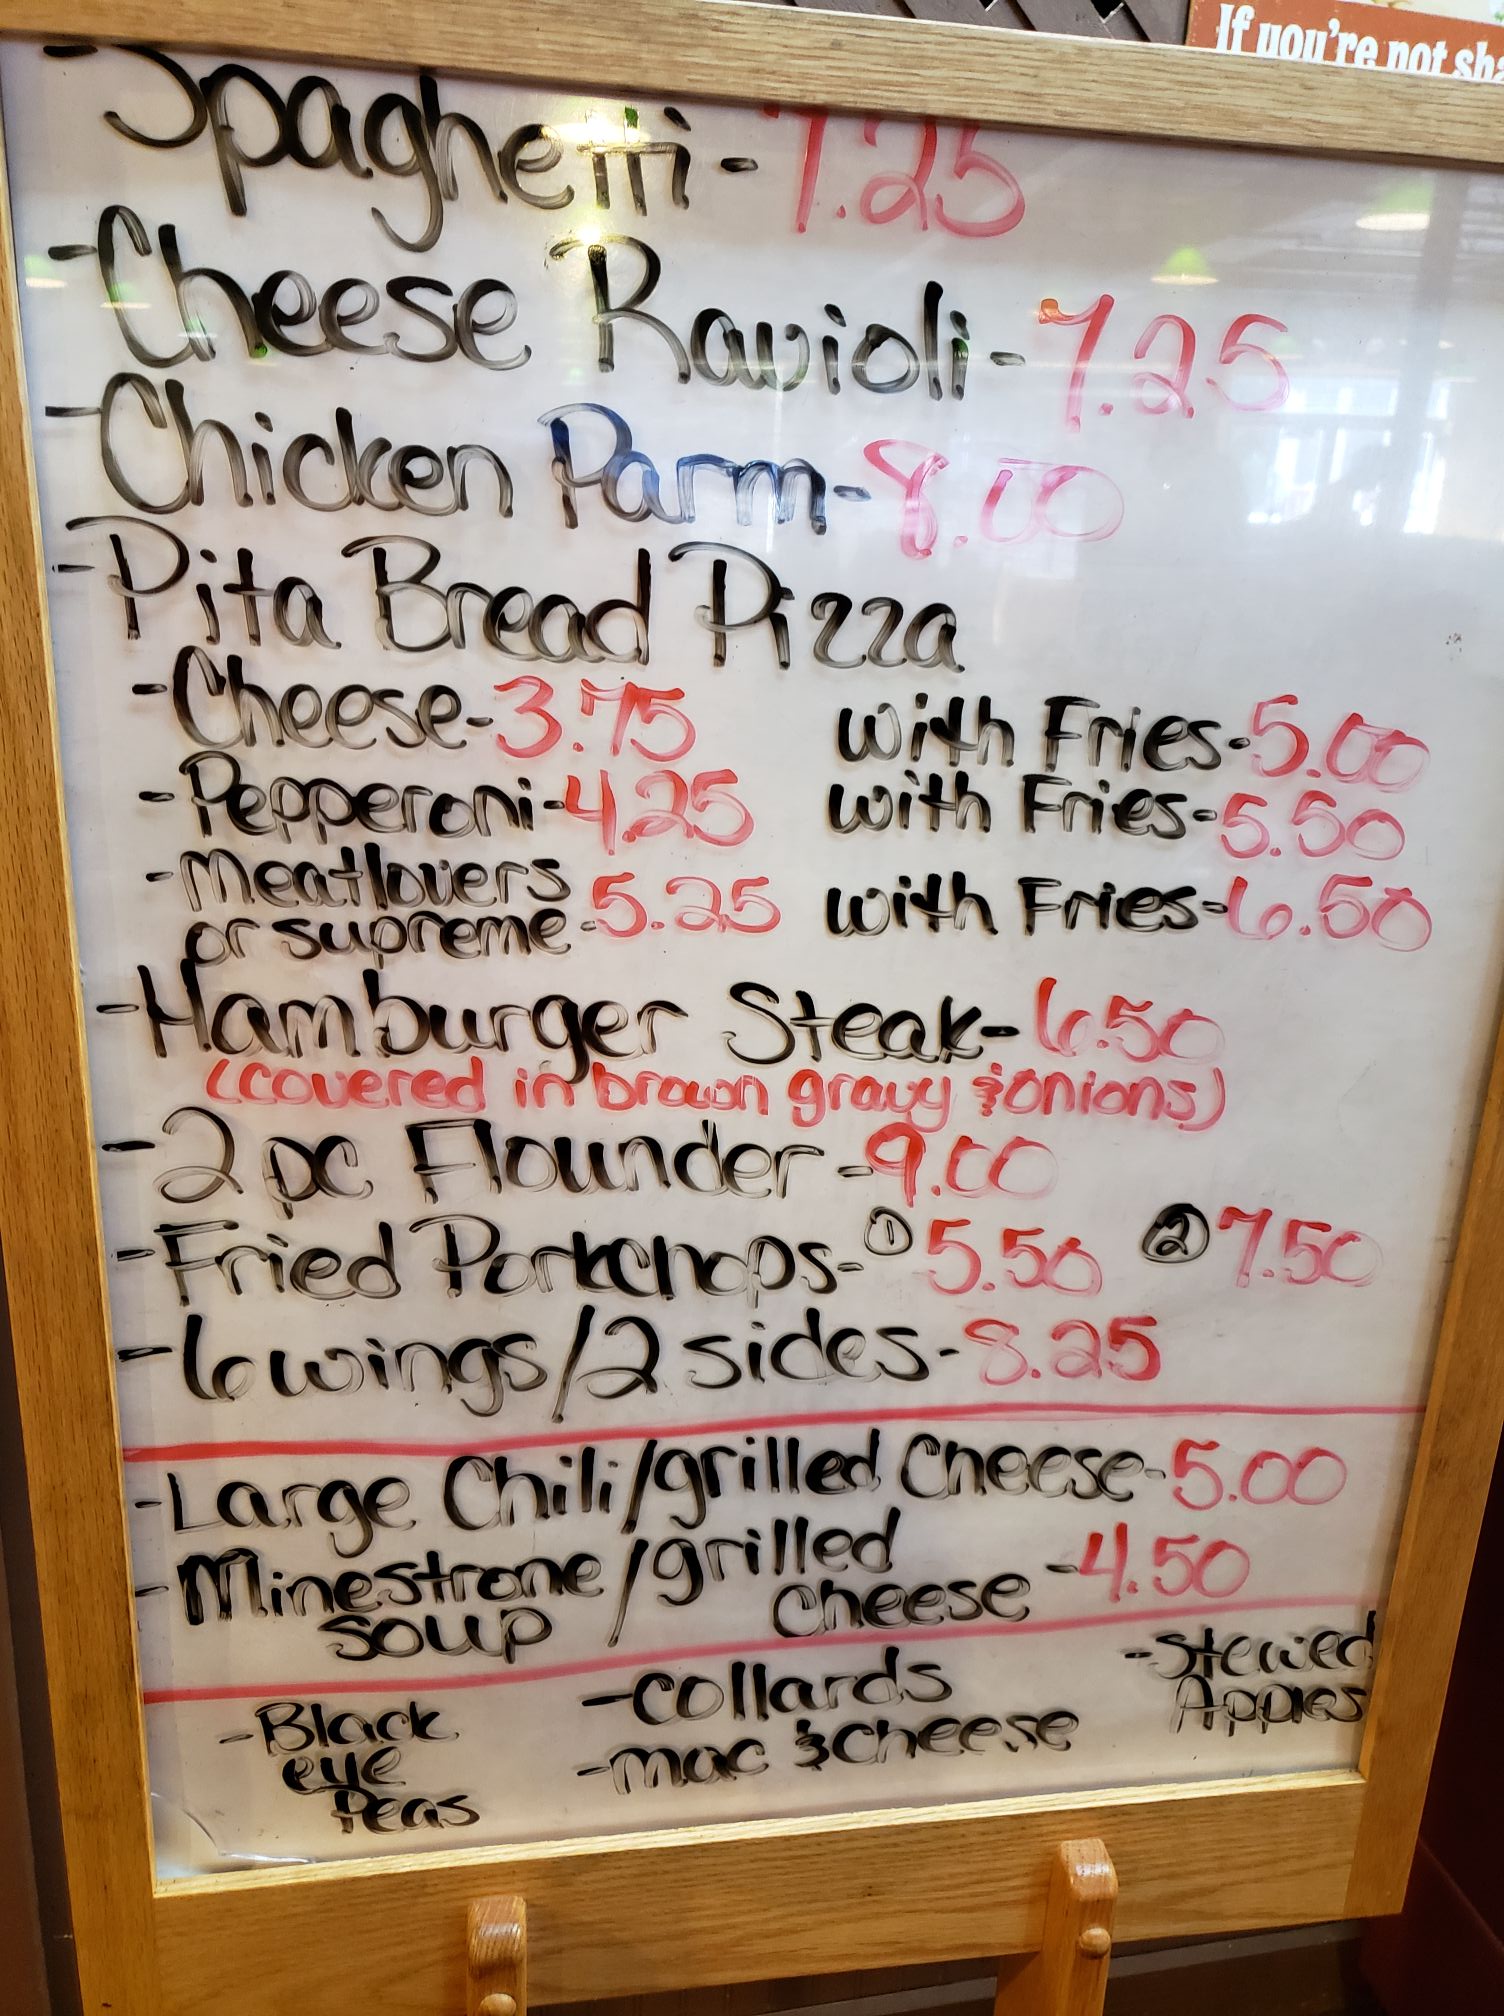 If you're not sha
-Spaghetti-7.25
-Cheese Ravioli-7.25
-Chicken Parm-8.00
-Pita Bread Pizza
-Cheese-3.75 with Fries-5.00
-Pepperoni-4.25 with Fries-5.50
-Meatlovers
or supreme-5.25 with Fries-6.50
-Hamburger Steak-6.50
(covered in brown gravy & onions)
-2 pc Flounder-9.00
-Fried Porkchops-① 5.50 ② 7.50
-6 wings/2 sides-8.25
-Large Chili/grilled Cheese-5.00
-Minestrone/grilled
soup cheese-4.50
-Black
eye
Peas
-collards
-mac & cheese
-stewed
Apples